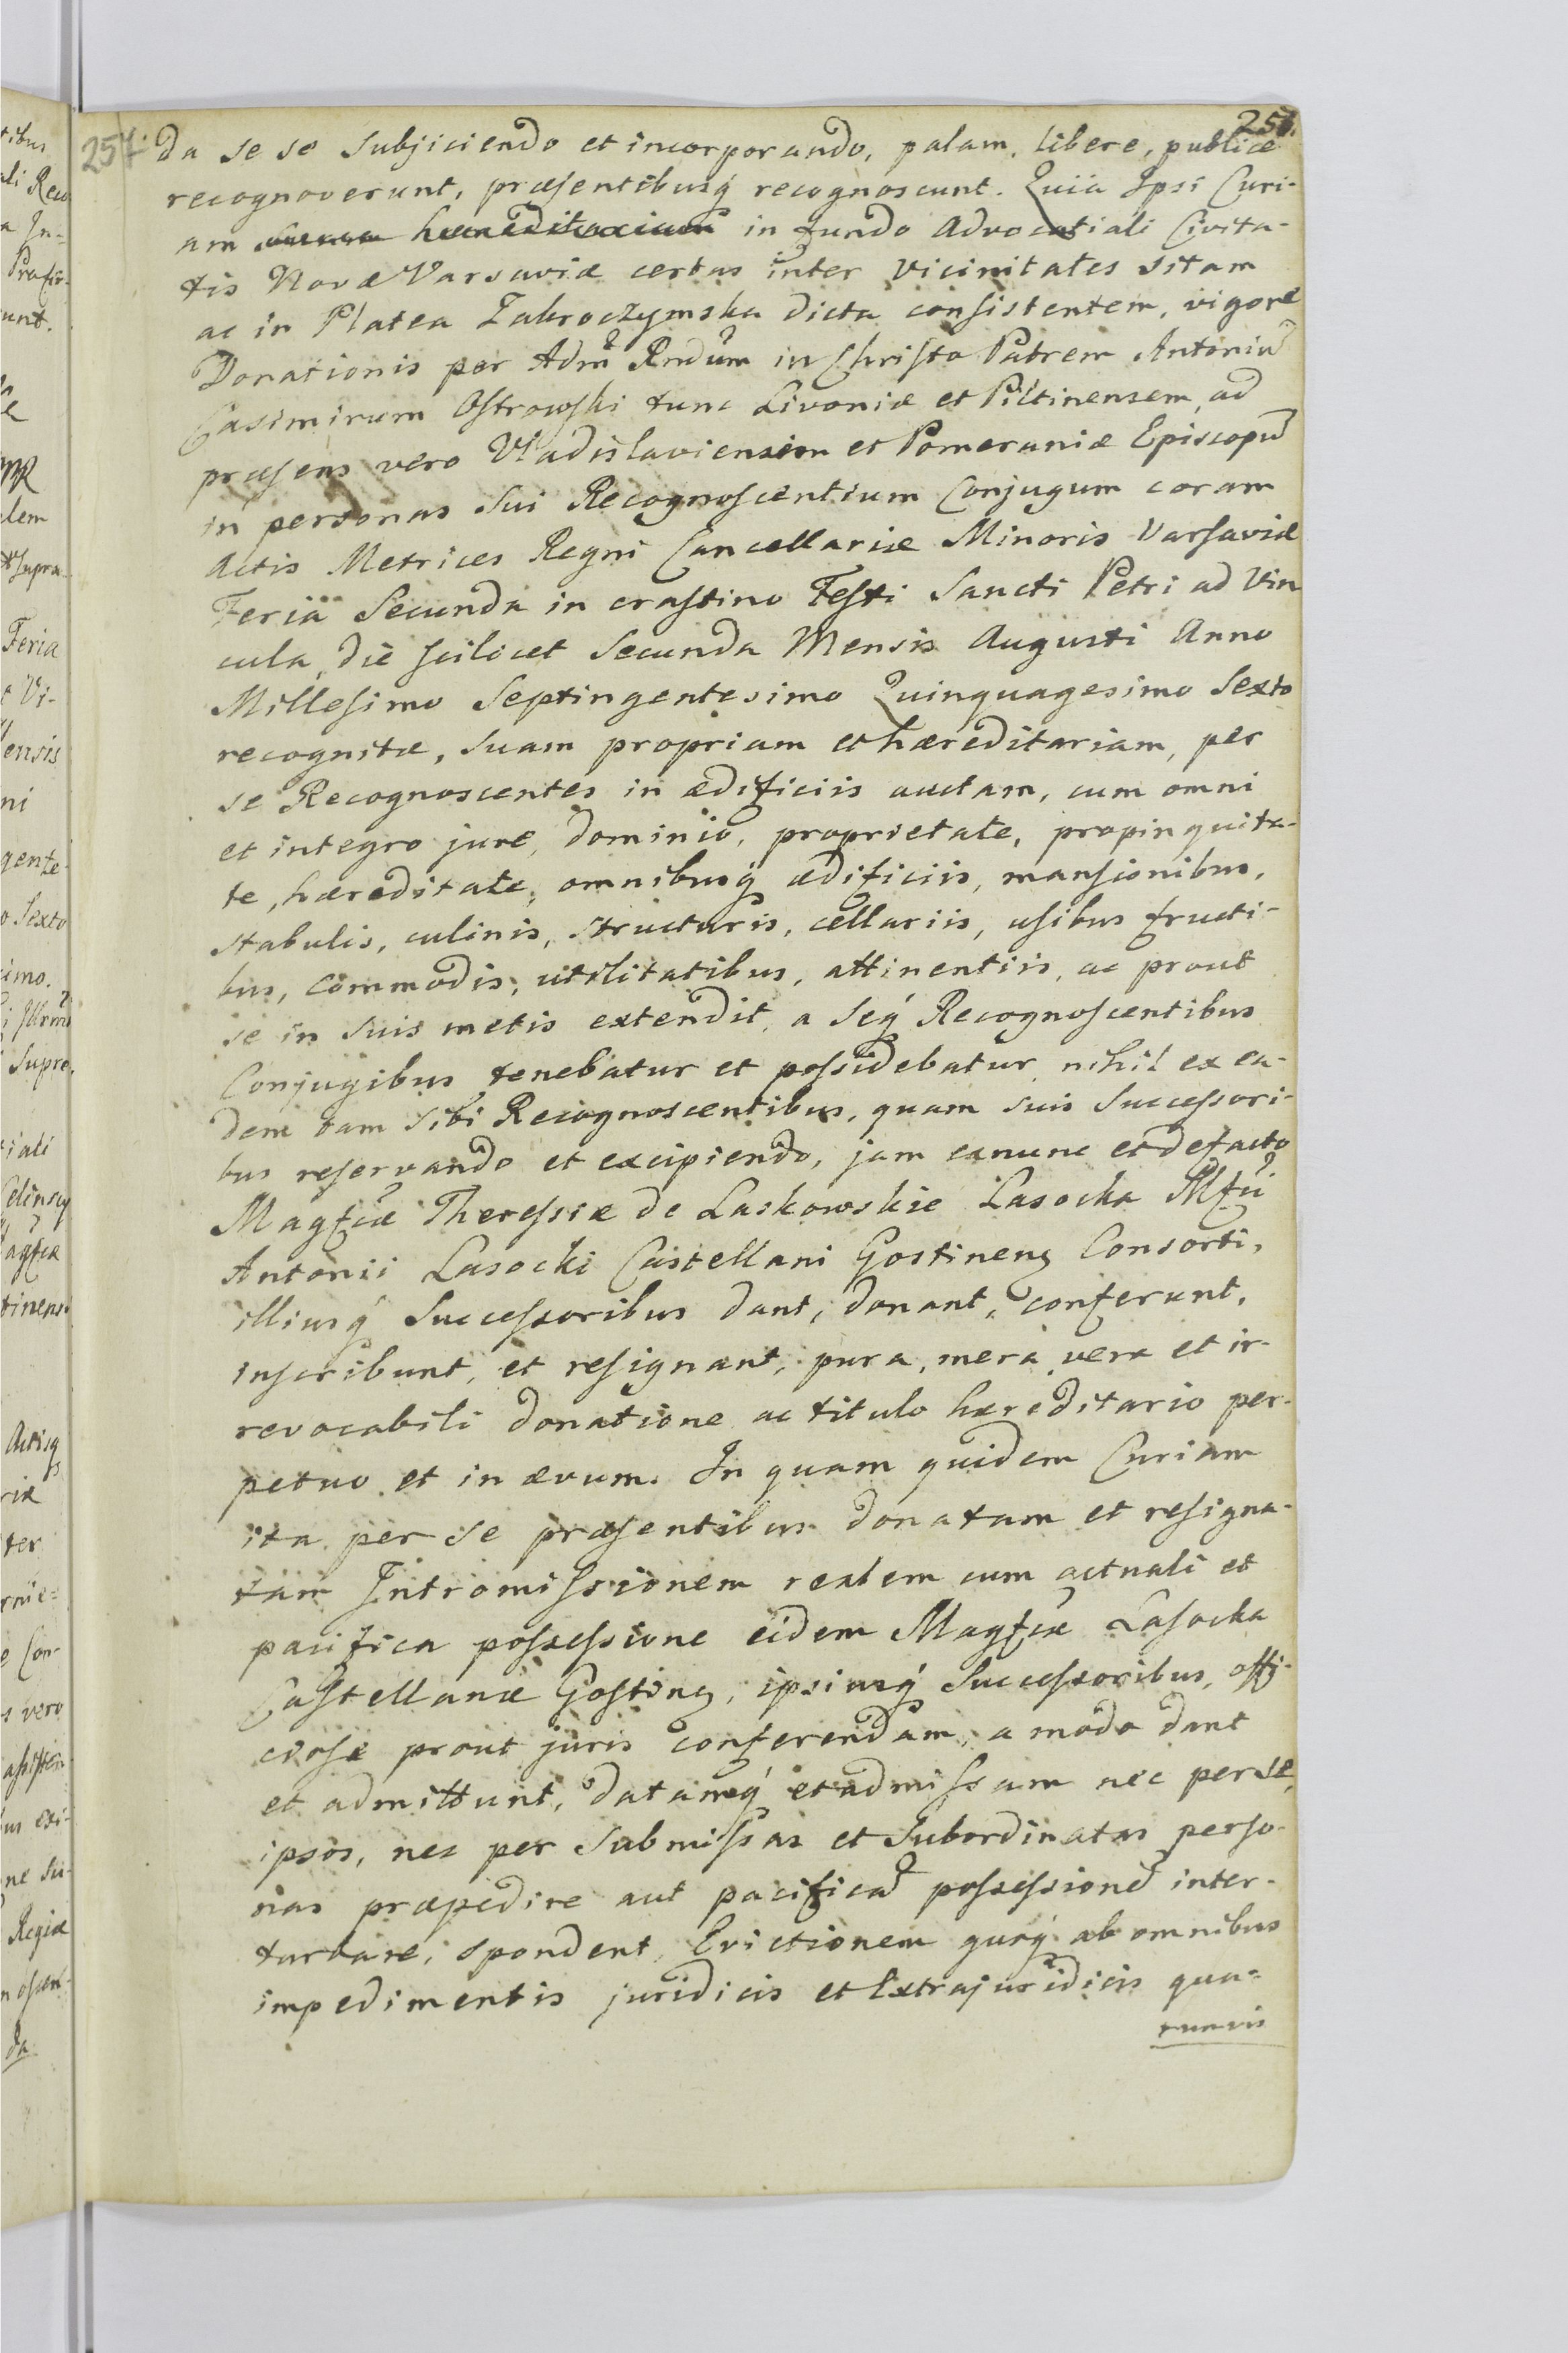 257.
257.
da se se subjiciendo et incorporando, palam, libere, publice
recognoverunt, præsentibusq́ recognoscunt. Quia Ipsi Curi-
am suam hæreditariam in fundo Advocatiali Civita-
tis Novæ Varsaviæ certas inter vicinitates sitam
ac in Platea Zakroczymska dicta consistentem, vigore
Donationis per Adm̃ Rndũm in Christo Patrem Antoniũ
Casimirum Ostrowski tunc Livoniæ et Piltinensem, ad
præsens vero Vladislaviensem et Pomeraniæ Episcopũ
in personas sui Recognoscentium Conjugum coram
Actis Metrices Regni Cancellariæ Minoris Varsaviæ
Feria Secunda in crastino Festi Sancti Petri ad Vin
cula, die scilicet Secunda Mensis Augusti Anno
Millesimo Septingentesimo Quinquagesimo Sexto
recognitæ, suam propriam et hæreditariam, per
se Recognoscentes in ædificiis auctam, cum omni
et integro jure, dominio, proprietate, propinquita-
te, hæreditate, omnibusq́ ædificiis, mansionibus,
stabulis, culinis, structuris, cellariis, usibus fructi-
bus, commodis, utilitatibus, attinentiis, ac prout
se in suis metis extendit, a seq́ Recognoscentibus
Conjugibus tenebatur et possidebatur, nihil ex ea-
dem tam sibi Recognoscentibus, quam suis Successori-
bus reservando et excipiendo, jam exnunc et defacto
Magfcæ Theressiæ de Laskowskie Lasocka Mfci
Antonii Lasocki Castellani Gostinens Consorti,
illiusq́ Successoribus dant, donant, conferunt,
inscribunt, et resignant, pura, mera, vera et ir-
revocabili donatione ac titulo hæreditario per-
petuo et in ævum. In quam quidem Curiam
ita per se præsentibus donatam et resigna-
tam Intromissionem realem cum actuali et
pacifica possessione eidem Magfcæ Lasocka
Castellanæ Gostinens, ipsiusq́ Successoribus, offi-
ciose prout juris conferendam, a modo dant
et admittunt, datamq́ et admissam nec per se
ipsos, nec per submissas et subordinatas perso-
nas præpedire aut pacificã possessionẽ inter-
turbare, spondent, Evictionem quoq́ ab omnibus
impedimentis juridicis et Extrajuridicis qua-